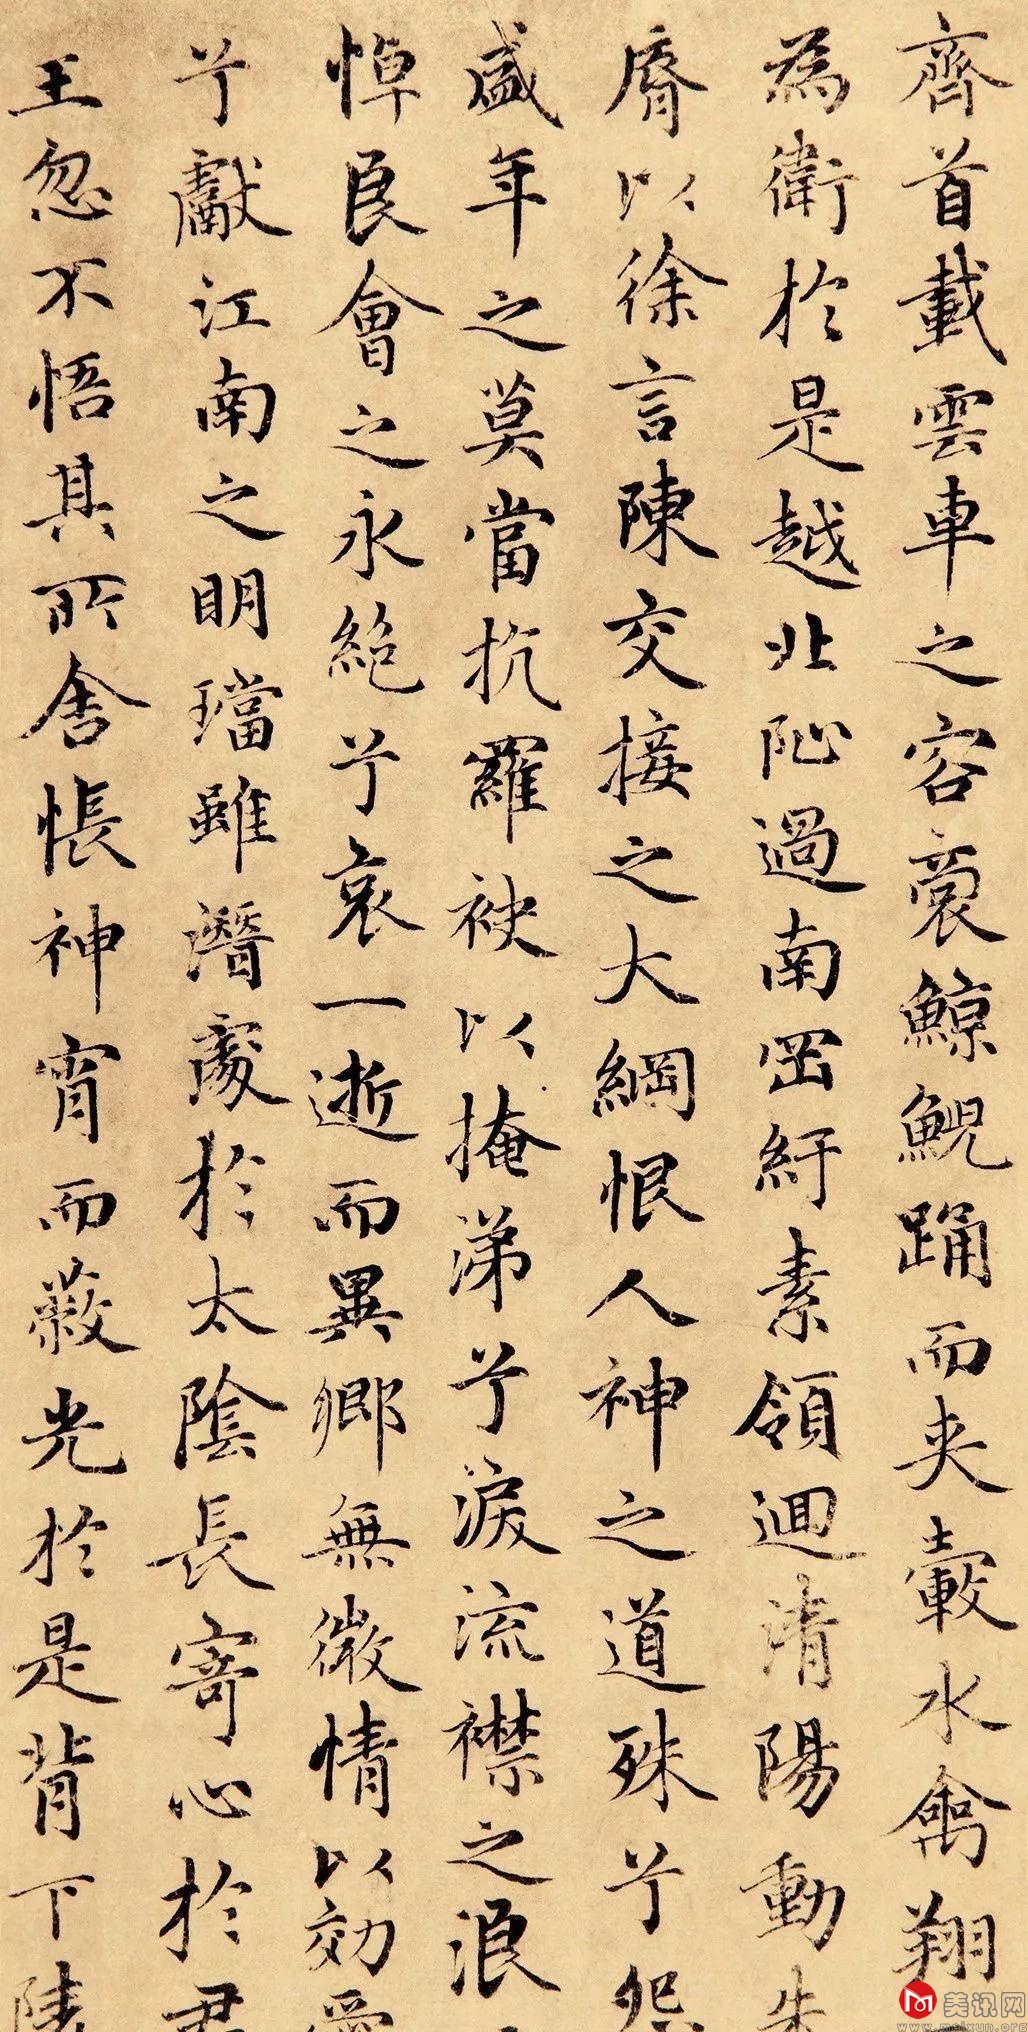 齊首載雲車之容裔鯨鯢踊而夾轂水禽翔
為衛於是越北沚過南岡紆素領迴清陽動朱
脣以徐言陳交接之大綱恨人神之道殊兮怨
盛年之莫當抗羅袂以掩涕兮淚流襟之浪
悼良會之永絕兮哀一逝而異鄉無微情以効愛
兮獻江南之明璫雖潛處於太陰長寄心於君
王忽不悟其所舍悵神宵而蔽光於是背下陵
美讯网
www.meixun.org